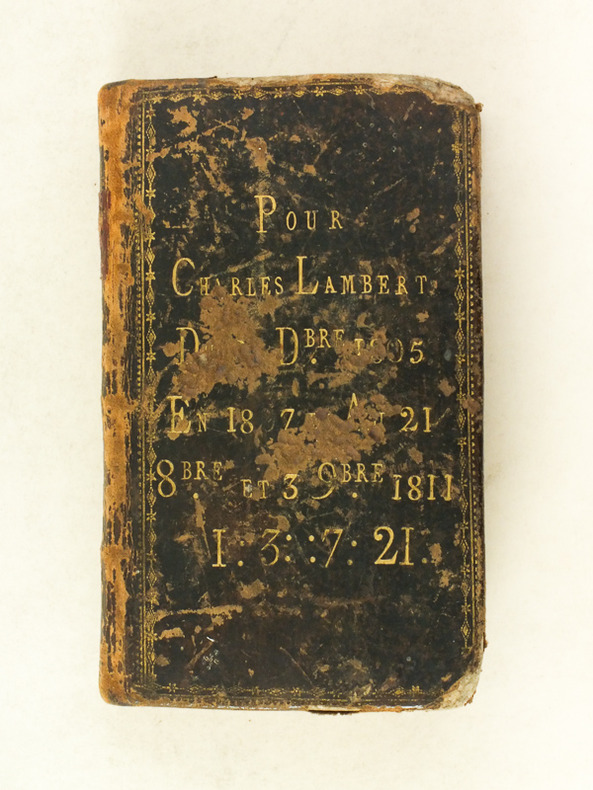 POUR
CHARLES LAMBERT
DBRE
EN 21
8BRE ET 3 9BRE 1811
1: 3: :7: 21.